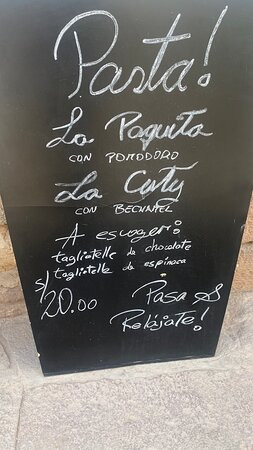 Pasta!
La Paquita
CON POMODORO
La Cuty
CON BECHAMEL
A escoger:
tagliatelle de chocolate
tagliatelle de espinaca
S/ 20.00
Pasa &
Relájate!